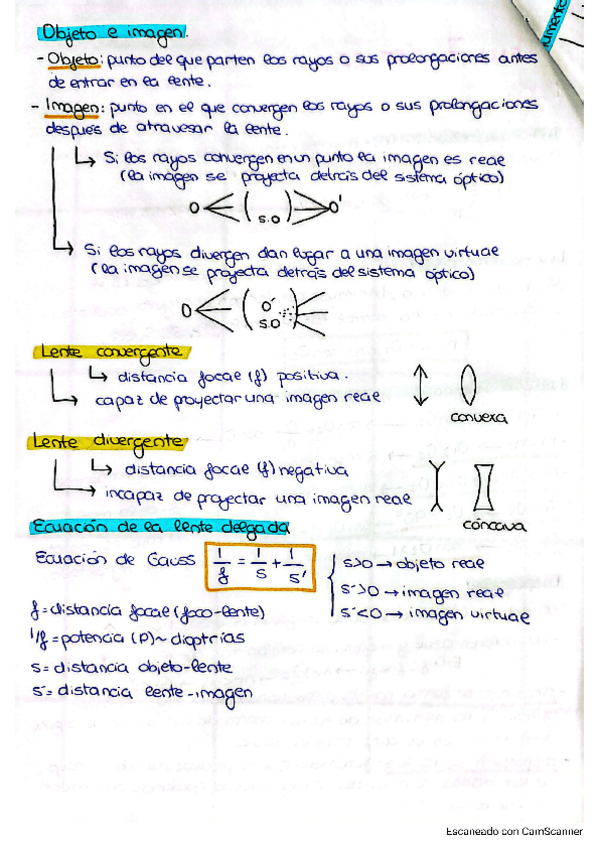 Objeto e imagen.
- Objeto: punto del que parten los rayos o sus prolongaciones antes
de entrar en la lente.
- Imagen: punto en el que convergen los rayos o sus prolongaciones
después de atravesar la lente.
↳ Si los rayos convergen en un punto la imagen es real
(la imagen se proyecta detrás del sistema óptico)
O S.O O'
↳ Si los rayos divergen dan lugar a una imagen virtual
(la imagen se proyecta detrás del sistema óptico)
O O' S.O
Lente convergente
↳ distancia focal (f) positiva.
↳ capaz de proyectar una imagen real
convexa
Lente divergente
↳ distancia focal (f) negativa
→ incapaz de proyectar una imagen real
cóncava
Ecuación de la lente delgada
Ecuación de Gauss 1/f = 1/s + 1/s'
s>0 → objeto real
s'>0 → imagen real
s'<0 → imagen virtual
f = distancia focal (foco-lente)
1/f = potencia (P) ~ dioptrías
s = distancia objeto-lente
s' = distancia lente-imagen
Escaneado con CamScanner